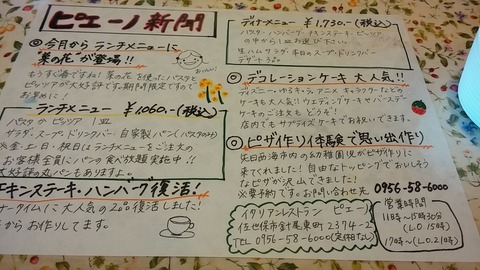 ピエーノ新聞
◎ 今月からランチメニューに
菜の花が登場!!
おいしい!
もうすぐ春ですね! 菜の花を使ったパスタと
ピッツァが大好評です。期間限定ですので
お早めに!
ランチメニュー ¥1,060.-(税込)
パスタ or ピッツァ 1皿
サラダ・スープ・ドリンクバー 自家製パン(パスタのみ)
※金・土・日・祝日はランチメニューをご注文の
お客様全員にパンの食べ放題実施中!!
大好評の丸パンもありますよ。
チキンステーキ・ハンバーグ復活!
ナータイムに大人気の2品が復活しました!
からお作りしてます。
ディナーメニュー ¥1,730.-(税込)
パスタ・ハンバーグ・チキンステーキ・ピッツァ
の中から1皿お選び下さい。
生ハムサラダ・本日のスープ・ドリンクバー
デザート付。
◎ デコレーションケーキ大人気!!
ディズニー・ゆるキャラ・アニメキャラクターなどの
ケーキも大人気!! ウエディングケーキやバースデー
ケーキのご注文もどうぞ!
店内でもサプライズケーキでお祝いできます。
◎ ピザ作り体験で思い出作り
先日西海市内の幼稚園児がピザ作りに
来てくれました! 自由なトッピングでおいしそう
なピザが沢山できました!
※要予約です。お問い合わせ先 0956-58-6000
イタリアンレストラン ピエーノ
佐世保市針尾東町2374-2
TEL 0956-58-6000(定休日なし)
営業時間
11時~15時30分
(L.O 15時)
17時~(L.O.21時)